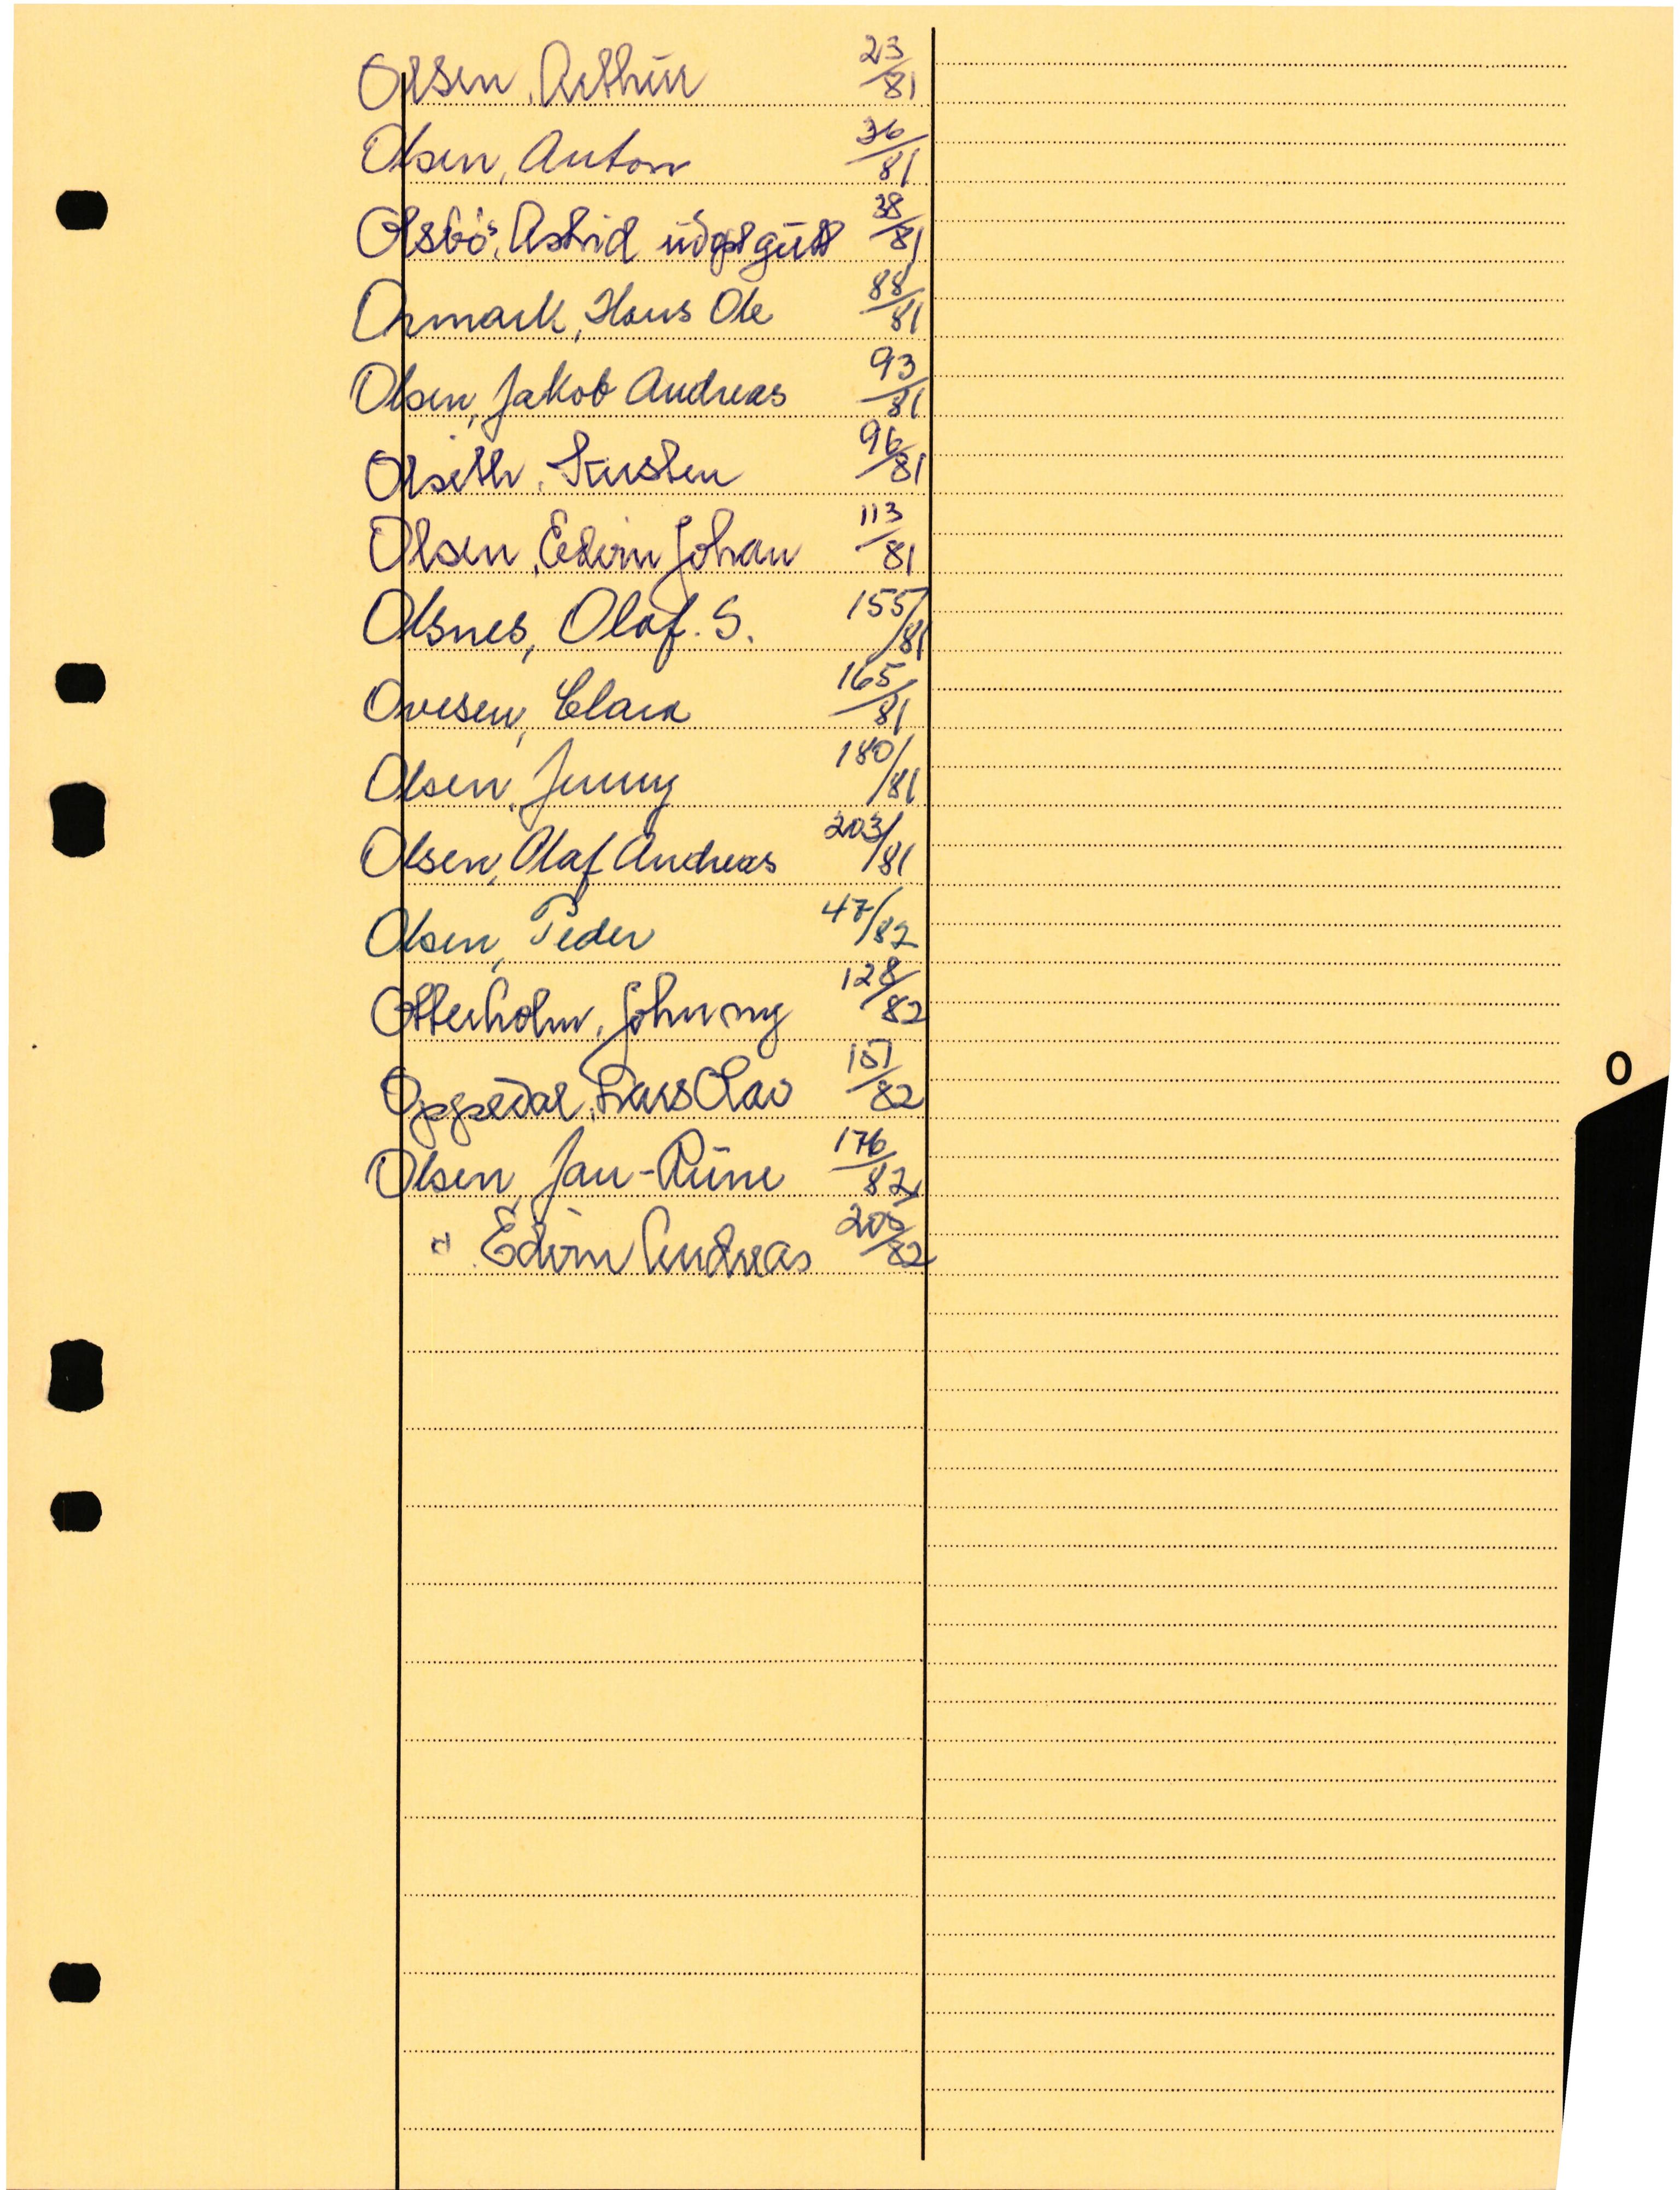 Olsen, Arthur 23/81
Olsen, Anton 36/81
Olsbø's, Astrid udøpt gutt 38/81
Ormark, Hans Ole 88/81
Olsen, Jakob Andreas 93/81
Olseth, Kirsten 96/81
Olsen, Edvin Johan 113/81
Olsnes, Olaf. S. 155/81
Ovesen, Clara 165/81
Olsen, Jenny 180/81
Olsen, Olaf Andreas 203/81
Olsen, Peder 47/82
Otterholm, Johnny 128/82
Oppedal, Lars Olav 151/82
O
Olsen, Jan-Rune 176/82
" Edvin Andreas /82